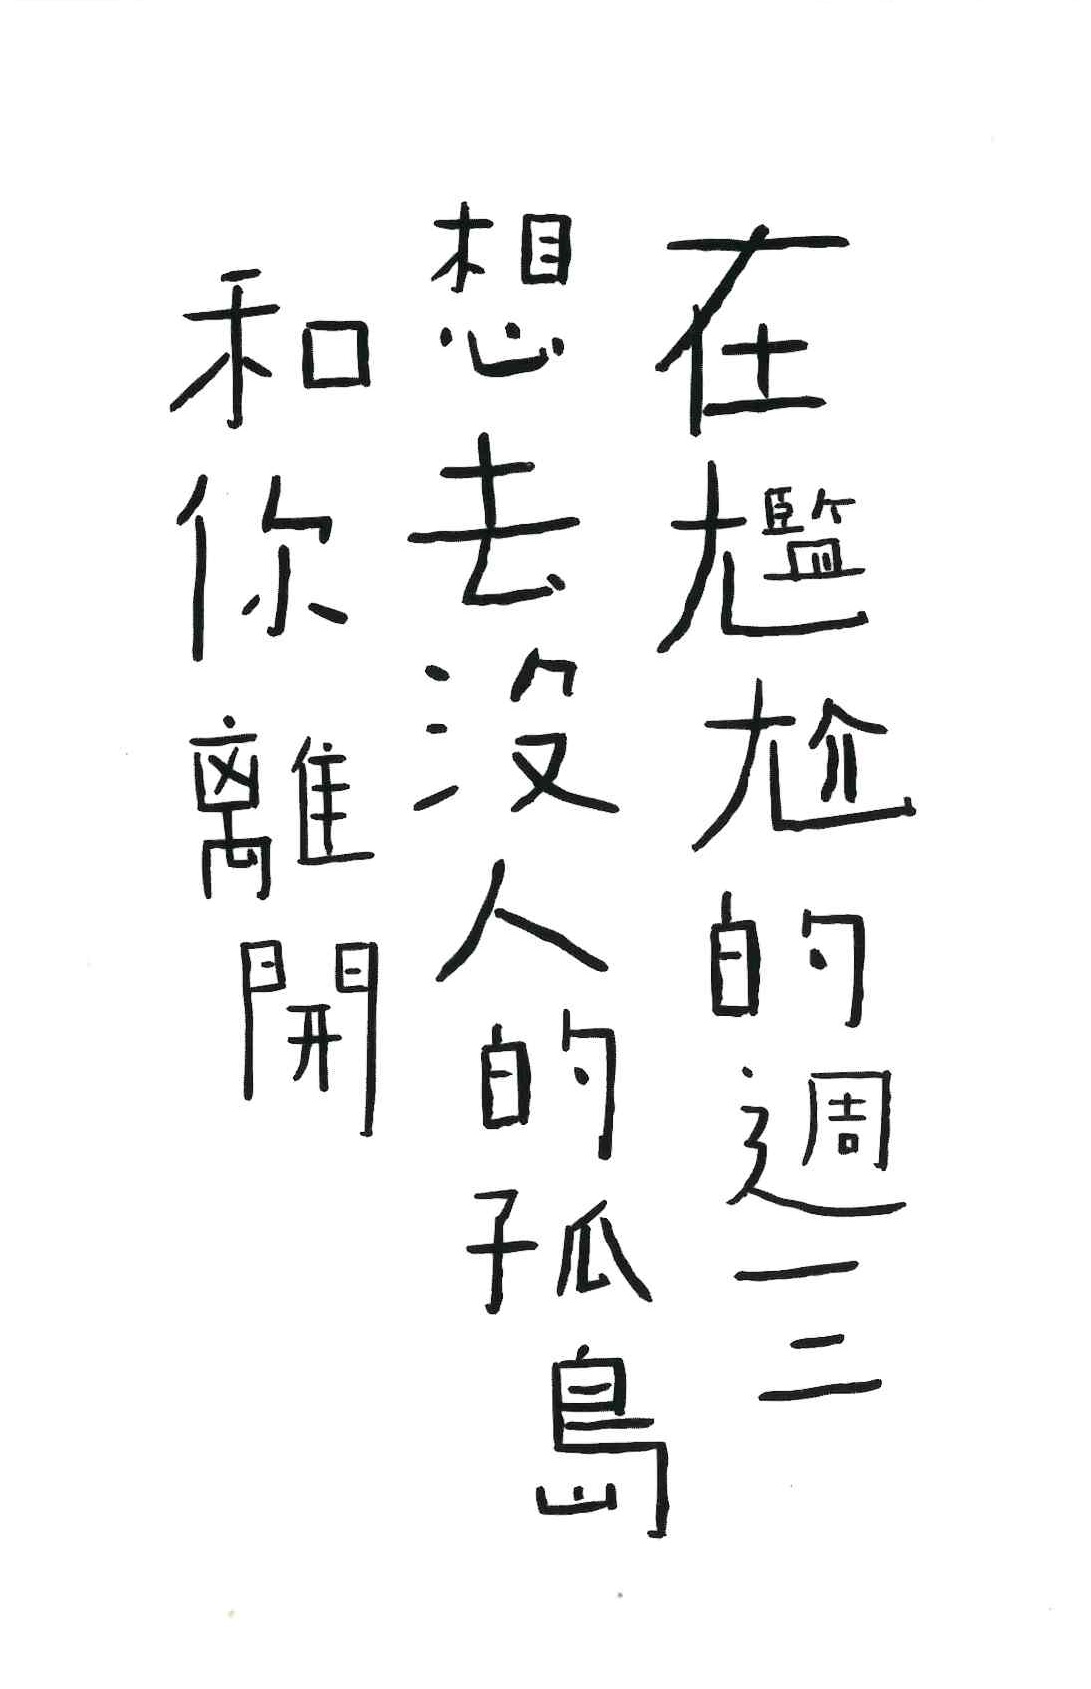 在尷尬的週一二
想去沒人的孤島
和你離開